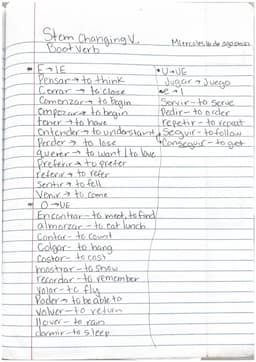 Stem Changing V.
Boot Verb
Miercoles 16 de
* E → IE
Pensar → to think
Cerrar → to close
Comenzar → to begin
empezar → to begin
tener → to have
Entender → to understand
Perder → to lose
querer → to want / to love
Preferir → to prefer
referir → to refer
Sentir → to fell
Venir → to come
* O → UE
Encontrar - to meet, to find
almorzar - to eat lunch
Contar - to count
Colgar - to hang
Costar - to cost
mostrar - to show
recordar - to remember
Volar - to fly
Poder → to be able to
volver - to return
llover - to rain
dormir - to sleep
* U → UE
Jugar → Juego
* e → i
Servir - to serve
Pedir - to order
repetir - to repeat
Seguir - to follow
Conseguir - to get